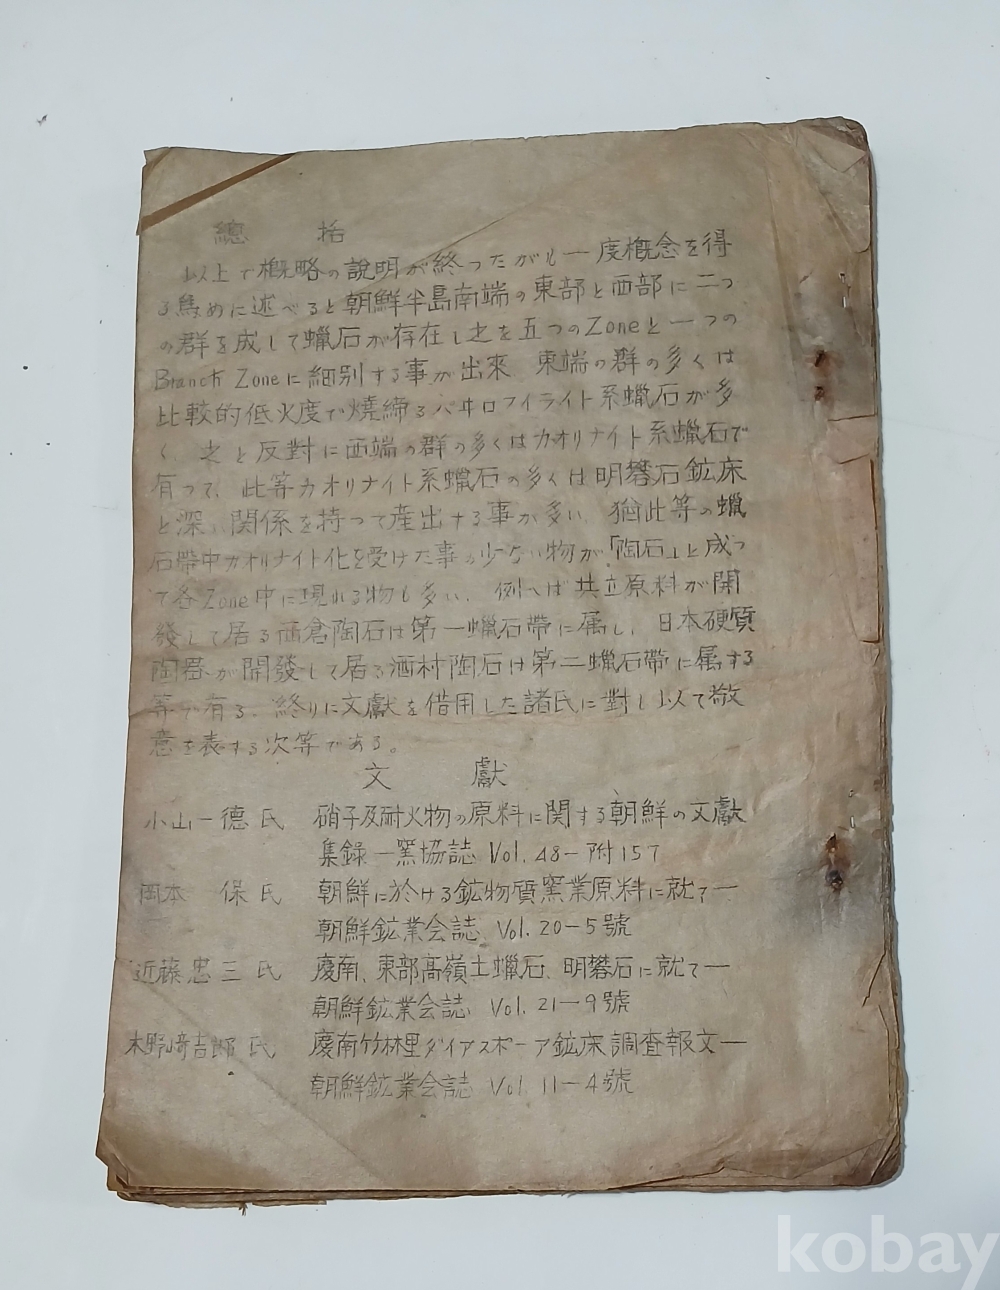 總 括
以上で概略の説明が終ったがも一度概念を得
る為めに述べると朝鮮半島南端の東部と西部に二つ
の群を成して蠟石が存在し之を五つのZoneと一つの
Branch Zoneに細別する事が出來 東端の群の多くは
比較的低火度で燒締るパイロフイライト系蠟石が多
く 之と反對に西端の群の多くはカオリナイト系蠟石で
有って、此等カオリナイト系蠟石の多くは明礬石鉱床
と深い関係を持つて産出する事が多い、猶此等の蠟
石帶中カオリナイト化を受けた事の少ない物が「陶石」と成つ
て各Zone中に現れる物も多い、例へば共立原料が開
發して居る 陶石は第一蠟石帶に属し、日本硬質
陶器が開發して居る酒村陶石は第二蠟石帶に属する
等で有る、終りに文獻を借用した諸氏に對し以て敬
意を表する次等である。
文 獻
小山一德氏 硝子及耐火物の原料に関する朝鮮の文獻
集録一窯協誌 Vol. 48-附157
岡本 保氏 朝鮮に於ける鉱物質窯業原料に就て一
朝鮮鉱業会誌 Vol. 20-5號
近藤忠三氏 慶南、東部高嶺土蠟石、明礬石に就て一
朝鮮鉱業会誌 Vol. 21-9號
木野崎吉郎氏 慶南竹林里ダイアスポーア鉱床調査報文一
朝鮮鉱業会誌 Vol. 11-4號
kobay